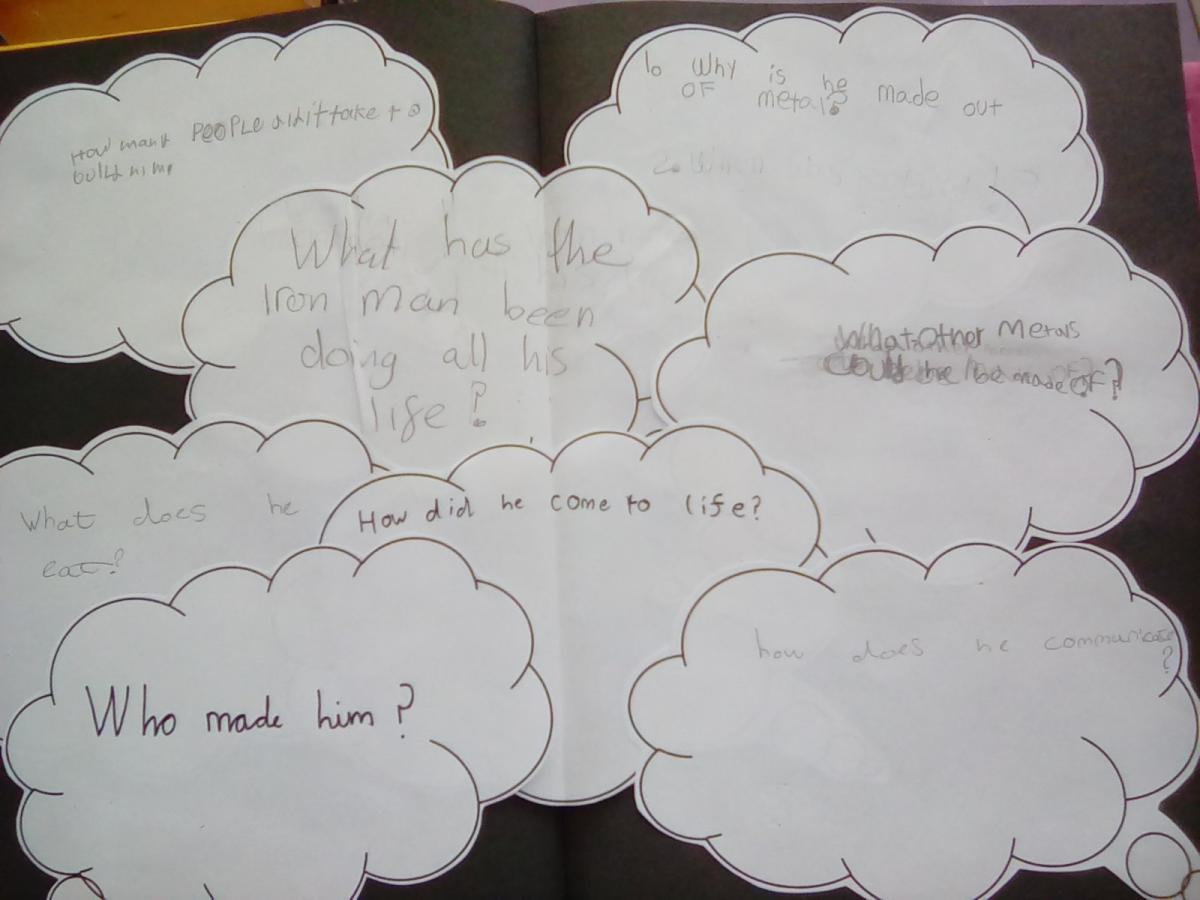 How many PEOPLE did it take to
build him?
1. Why is he made out
OF metal?
2. When
What has the
Iron man been
doing all his
life?
What Other Metals
Could he be made OF?
What does he
eat?
How did he come to life?
Who made him?
how does he communicate
?